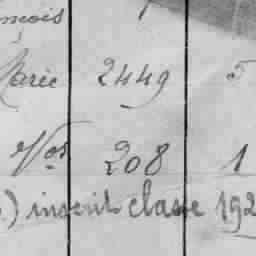 Marie 2449 5
Nos 208 1
) inscrit classe 192